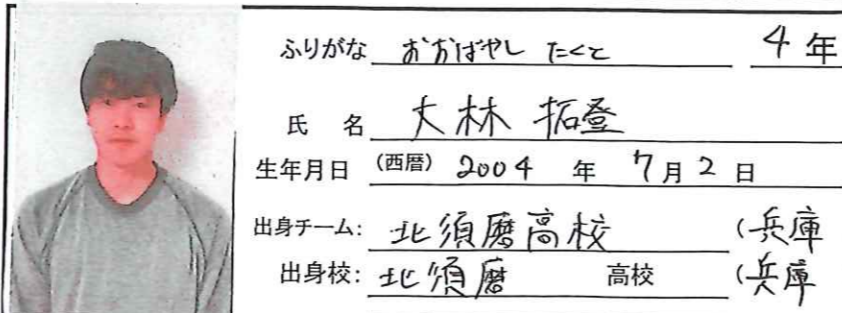 ふりがな おおばやし たくと 4年
氏 名 大林 拓登
生年月日 (西暦) 2004 年 7月 2 日
出身チーム: 北須磨高校 (兵庫
出身校: 北須磨 高校 (兵庫